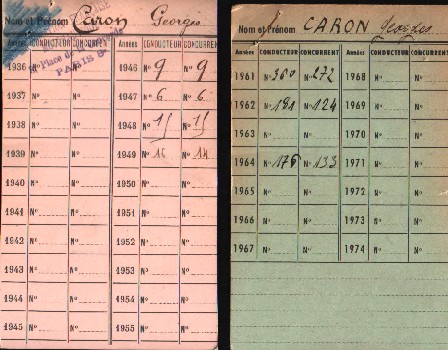 Nom et Prénom Caron Georges
Années CONDUCTEUR CONCURRENT Années CONDUCTEUR CONCURRENT
1936 Nº Nº 1946 Nº 9 Nº 9
PARIS 8e
1937 Nº Nº 1947 Nº 6 Nº 6
1938 Nº Nº 1948 Nº 15 Nº 15
1939 Nº Nº 1949 Nº 16 Nº 14
1940 Nº Nº 1950 Nº Nº
1941 Nº Nº 1951 Nº Nº
1942 Nº Nº 1952 Nº Nº
1943 Nº Nº 1953 Nº Nº
1944 Nº Nº 1954 Nº Nº
1945 Nº Nº 1955 Nº Nº
Nom et Prénom CARON Georges
Années CONDUCTEUR CONCURRENT Années CONDUCTEUR CONCURRENT
1961 Nº 360 Nº 272 1968 Nº Nº
1962 Nº 191 Nº 124 1969 Nº Nº
1963 Nº Nº 1970 Nº Nº
1964 Nº 176 Nº 133 1971 Nº Nº
1965 Nº Nº 1972 Nº Nº
1966 Nº Nº 1973 Nº Nº
1967 Nº Nº 1974 Nº Nº